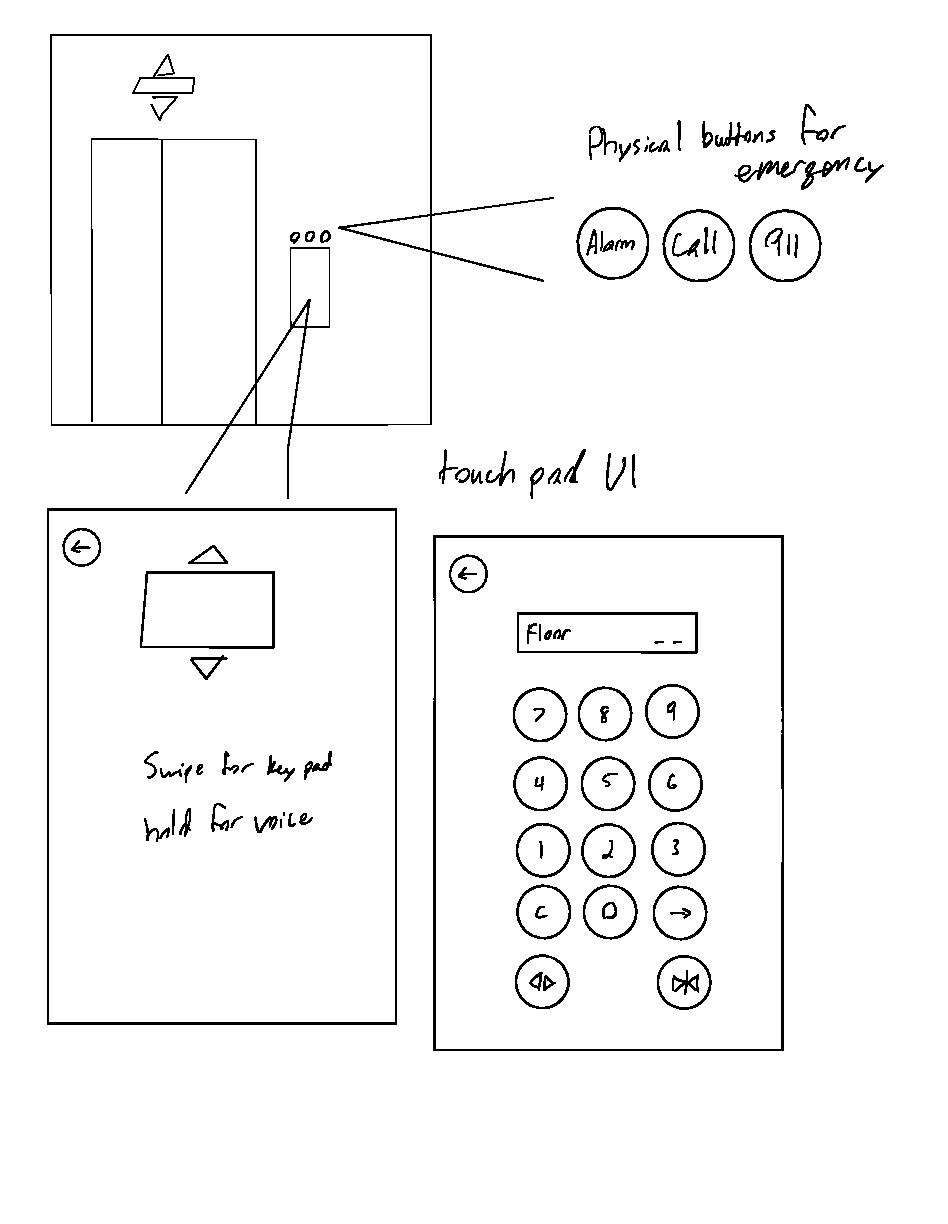 Physical buttons for
emergency
Alarm Call 911
touch pad UI
←
Swipe for key pad
hold for voice
←
Floor _ _
7 8 9
4 5 6
1 2 3
C 0 →